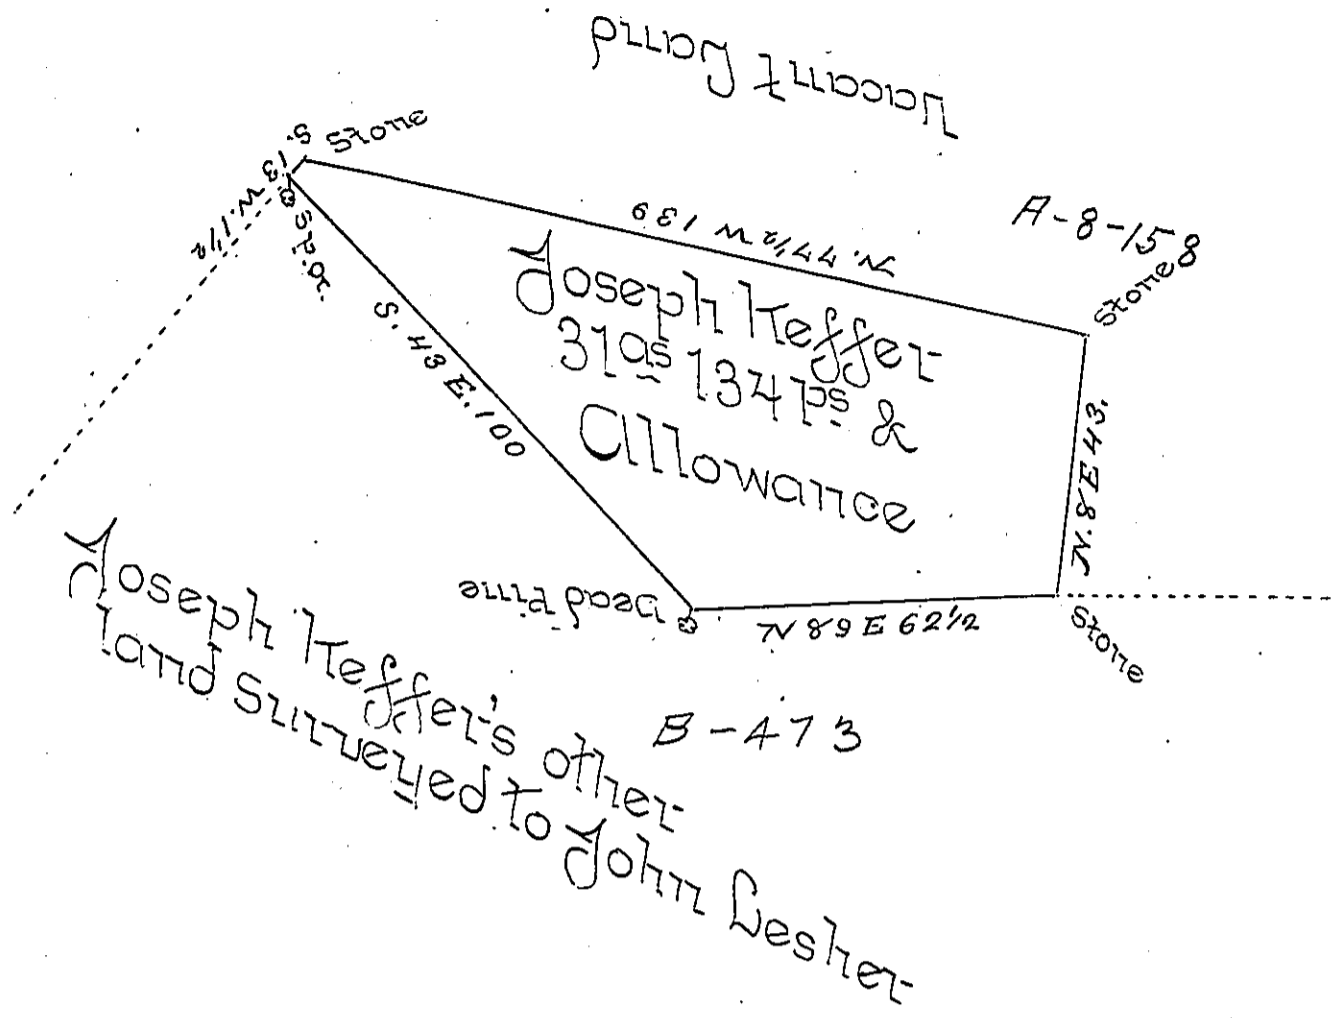 Vacant Land
Stone
S. 13 W. 1 1/2
Sp. o.
N. 77 1/2 W 139
A-8-158
Stone
Joseph Keffer
31as 134ps &
Allowance
S. 43 E. 100
N. 8 E 43.
Dead Pine
N 89 E 62 1/2
Stone
Joseph Keffer's other
land Surveyed to John Lesher
B-473